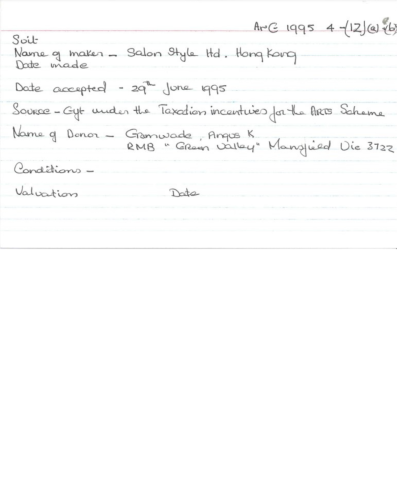 ArC 1995 4-(12)(a)+(b)
Suit
Name of maker - Salon Style Ltd. Hong Kong
Date made
Date accepted - 29th June 1995
Source - Gift under the Taxation incentives for the ARTS Scheme
Name of Donor - Grimwade, Angus K
RMB "Green Valley" Mansfield Vic 3722
Conditions -
Valuation Date